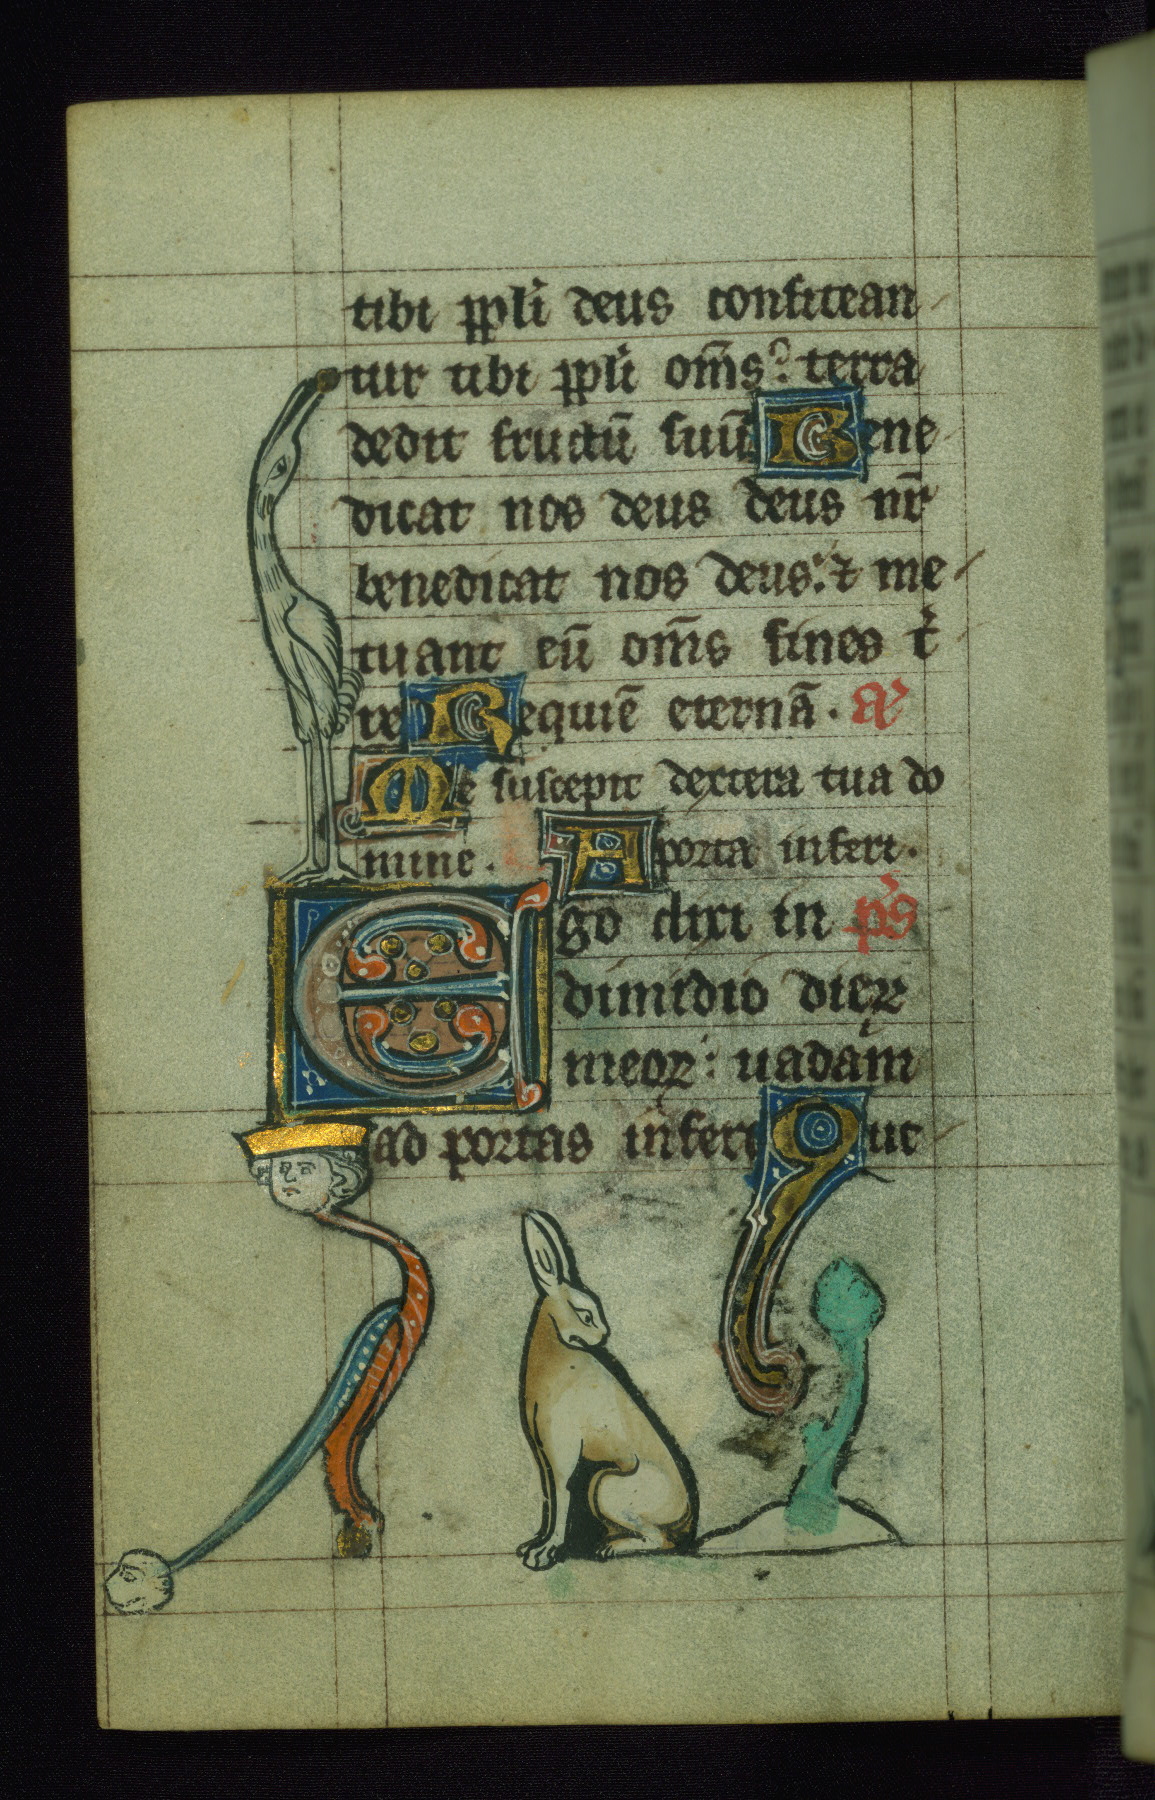 tibi ppl̃i deus confitean
tur tibi ppl̃i om̃s: terra
dedit fructũ suũ Bene
dicat nos deus deus nr̃
benedicat nos deus: et me
tuant eũ om̃s fines t̃
re Requiẽ eternã. añ
Me suscepit dextera tua do
mine. A porta inferi.
Ego dixi in pſ̃
dimidio dieꝝ
meoꝝ: uadam
ad portas inferi Q ut